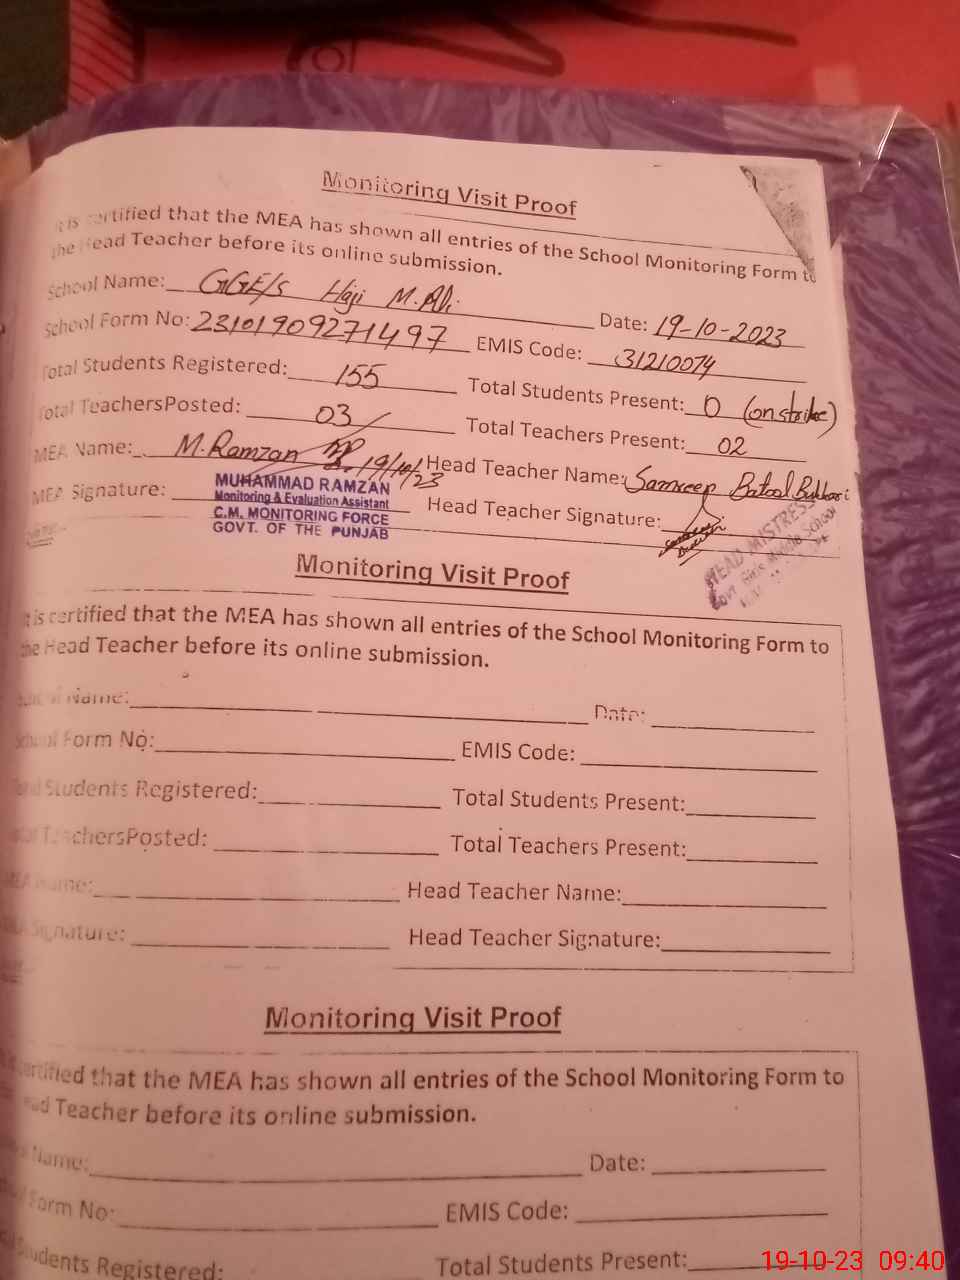 Monitoring Visit Proof
It is certified that the MEA has shown all entries of the School Monitoring Form to
the Head Teacher before its online submission.
School Name: GGE/S Haji M. Ali. Date: 19-10-2023
School Form No: 23101909271497 EMIS Code: 31210074
Total Students Registered: 155 Total Students Present: 0 (on strike)
Total TeachersPosted: 03 Total Teachers Present: 02
MEA Name: M. Ramzan 19/10/23 Head Teacher Name: Batool Bukhari
MEA Signature: Head Teacher Signature:
MUHAMMAD RAMZAN
Monitoring & Evaluation Assistant
C.M. MONITORING FORCE
GOVT. OF THE PUNJAB
HEAD MISTRESS
Govt. Girls Middle School
Monitoring Visit Proof
It is certified that the MEA has shown all entries of the School Monitoring Form to
the Head Teacher before its online submission.
School Name: Date:
School Form No: EMIS Code:
Total Students Registered: Total Students Present:
Total TeachersPosted: Total Teachers Present:
MEA Name: Head Teacher Name:
MEA Signature: Head Teacher Signature:
Monitoring Visit Proof
certified that the MEA has shown all entries of the School Monitoring Form to
Head Teacher before its online submission.
Name: Date:
Form No: EMIS Code:
Students Registered: Total Students Present:
19-10-23 09:40